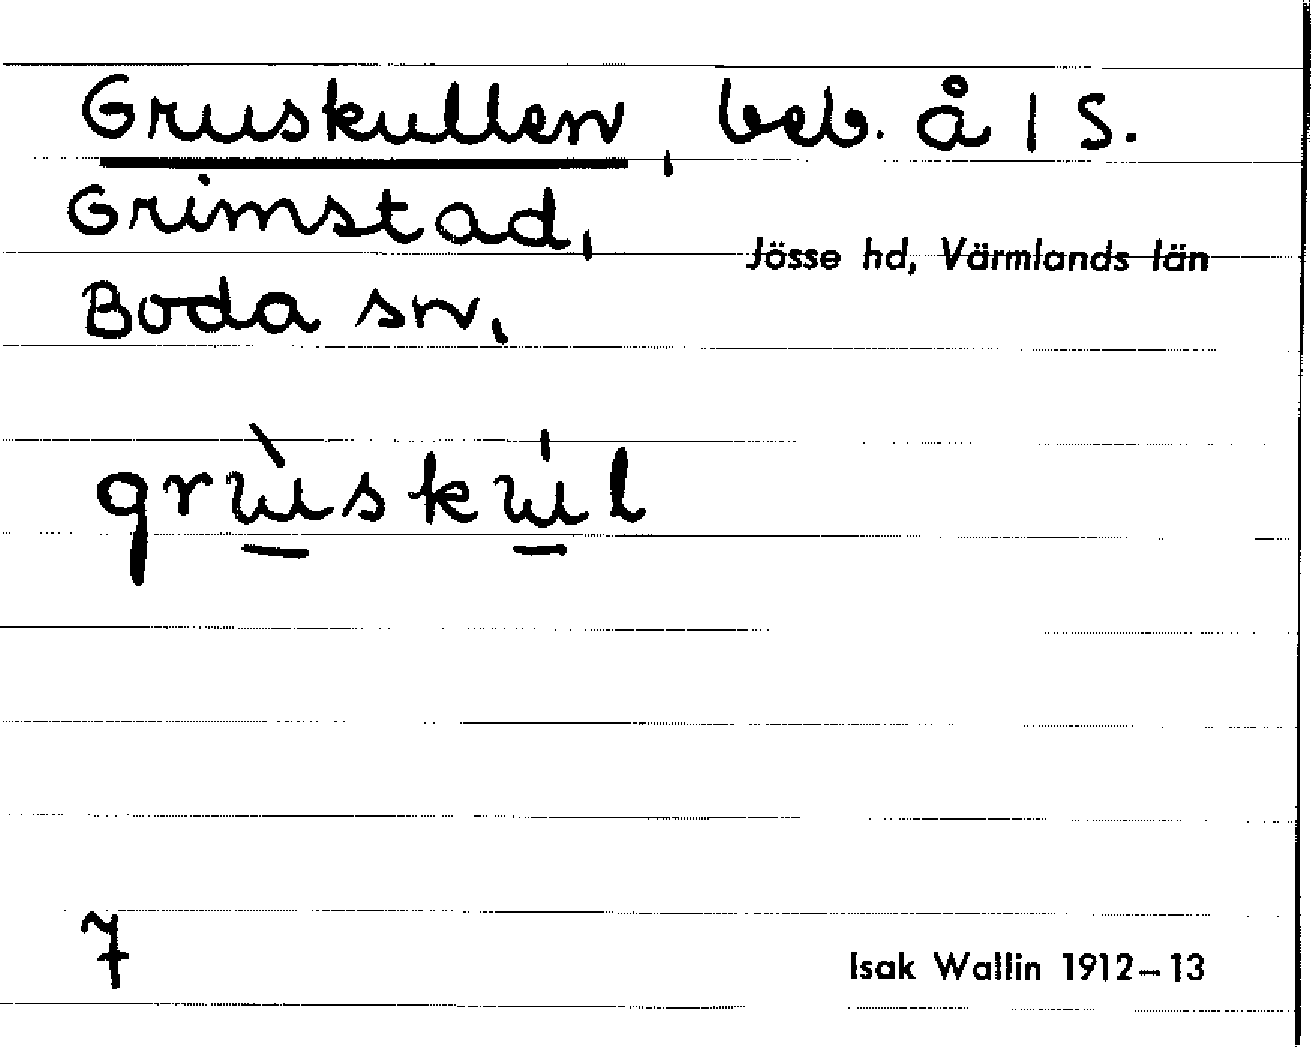 Gruskullen, beb. å 1 S.
Grimstad,
Jösse hd, Värmlands län
Boda sn,
grùskúl
7
Isak Wallin 1912–13